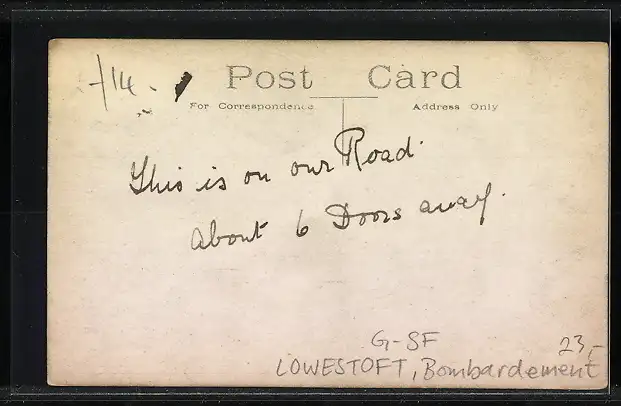 /14.
Post Card
For Correspondence
Address Only
This is on our Road.
About 6 Doors away.
G-SF
23,-
LOWESTOFT, Bombardement